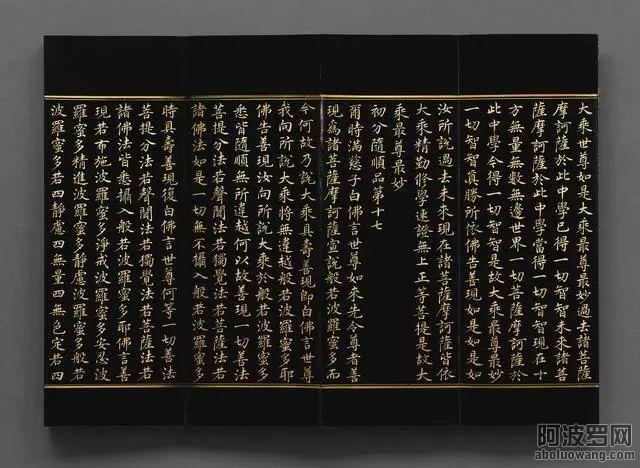 大乘世尊如是大乘最尊最妙過去諸菩薩
摩訶薩於此中學已得一切智智未來諸菩
薩摩訶薩於此中學當得一切智智現在十
方無量無數無邊世界一切菩薩摩訶薩於
此中學今得一切智智是故大乘最尊最妙
一切智智真勝所依佛告善現如是如是如
汝所說過去未來現在諸菩薩摩訶薩皆依
大乘精勤修學速證無上正等菩提是故大
乘最尊最妙
初分隨順品第十七
爾時滿慈子白佛言世尊如來先令尊者善
現為諸菩薩摩訶薩宣說般若波羅蜜多而
今何故乃說大乘具壽善現即白佛言世尊
我向所說大乘將無違越般若波羅蜜多耶
佛告善現汝向所說大乘於般若波羅蜜多
悉皆隨順無所違越何以故善現一切善法
菩提分法若聲聞法若獨覺法若菩薩法若
諸佛法如是一切無不攝入般若波羅蜜多
時具壽善現復白佛言世尊何等一切善法
菩提分法若聲聞法若獨覺法若菩薩法若
諸佛法皆悉攝入般若波羅蜜多耶佛言善
現若布施波羅蜜多淨戒波羅蜜多安忍波
羅蜜多精進波羅蜜多靜慮波羅蜜多般若
波羅蜜多若四靜慮四無量四無色定若四
阿波罗网
aboluowang.com